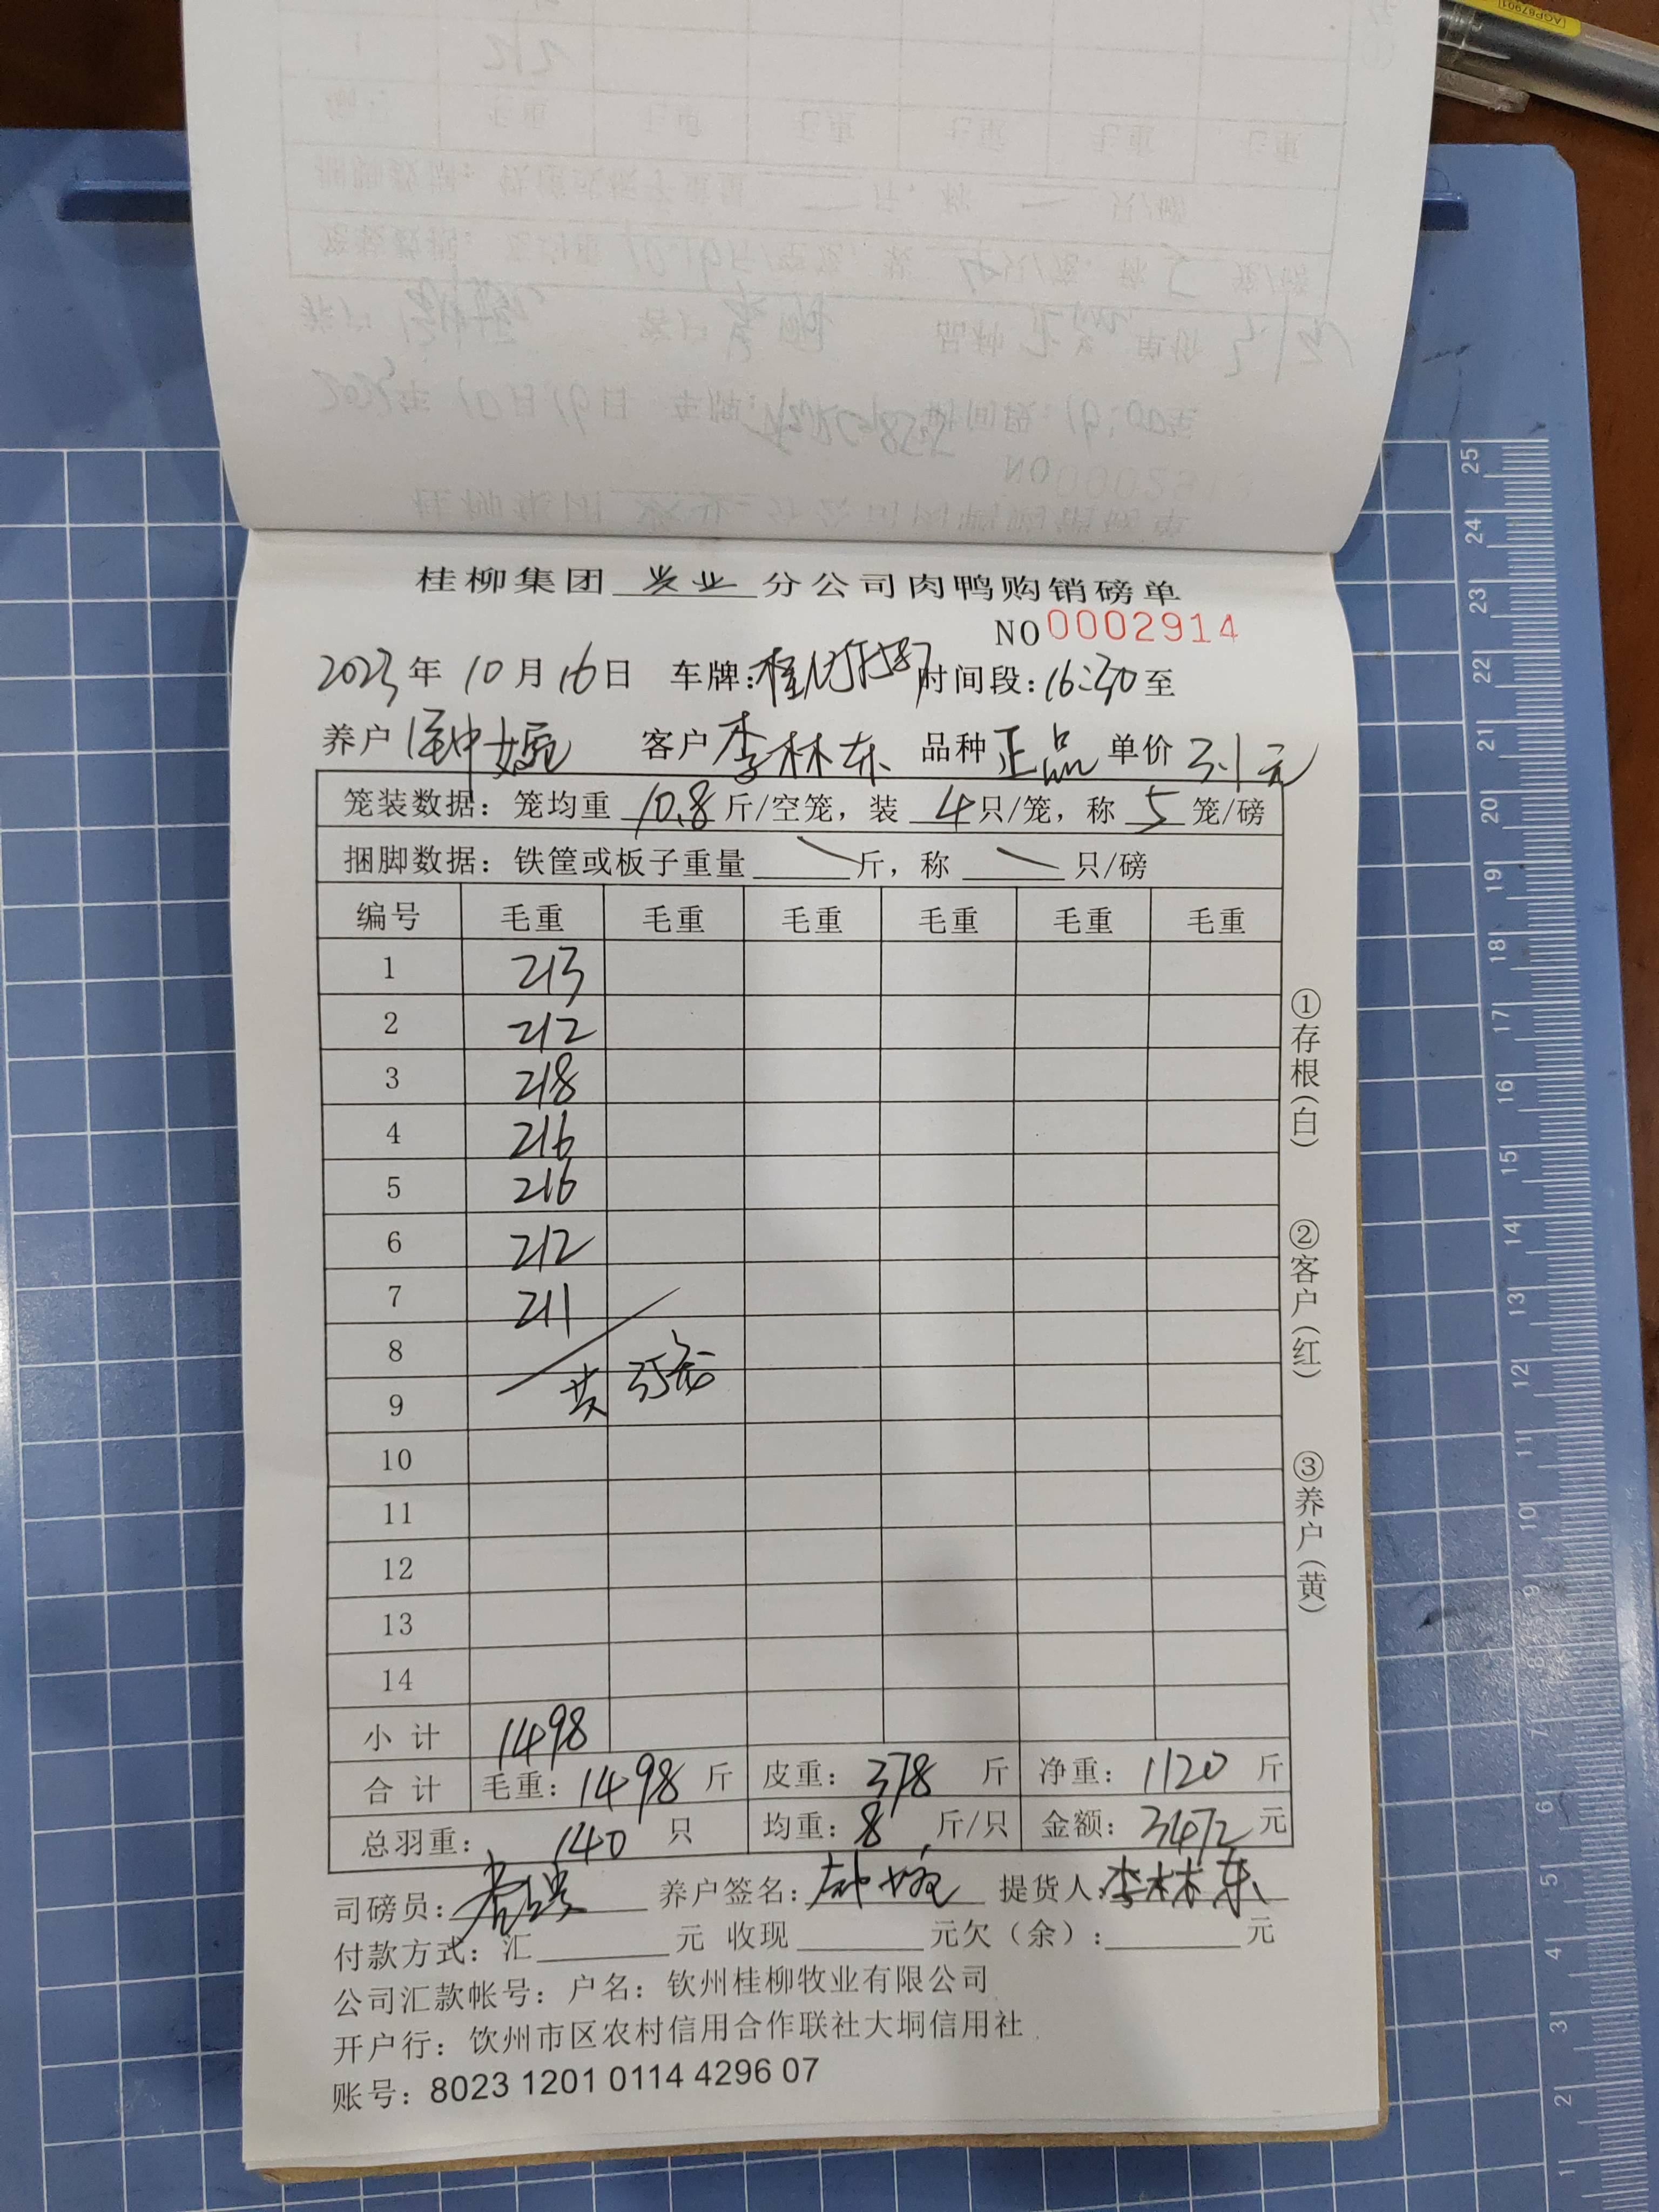 桂柳集团 兴业 分公司肉鸭购销磅单
NO 0002914
2023年 10月 16日 车牌: 时间段: 16:30至
养户 钟婉 客户 李林东 品种 正品 单价 3.1元
笼装数据: 笼均重 10.8 斤/空笼, 装 4 只/笼, 称 5 笼/磅
捆脚数据: 铁筐或板子重量 斤, 称 只/磅
编号 毛重 毛重 毛重 毛重 毛重 毛重
1 213
2 212
3 218
4 216
5 216
6 212
7 211
8
9 共 35笼
10
11
12
13
14
小计 1498
合计 毛重: 1498 斤 皮重: 378 斤 净重: 1120 斤
总羽重: 140 只 均重: 8 斤/只 金额: 3472 元
司磅员: 养户签名: 钟婉 提货人: 李林东
付款方式: 汇 元 收现 元欠(余): 元
公司汇款帐号: 户名: 钦州桂柳牧业有限公司
开户行: 饮州市区农村信用合作联社大垌信用社
账号: 8023 1201 0114 4296 07
①存根(白)
②客户(红)
③养户(黄)
25
24
23
22
21
20
19
18
17
16
15
14
13
12
11
10
9
8
7
6
5
4
3
2
1